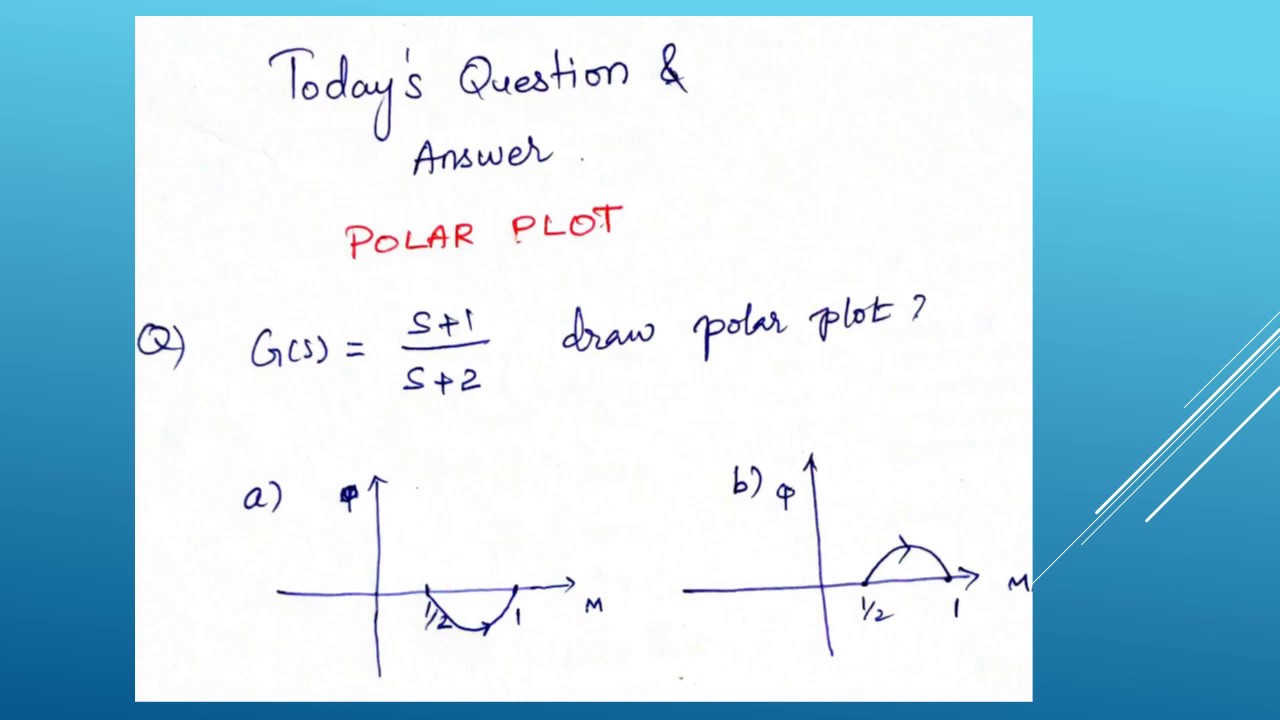 Today's Question &
Answer.
POLAR PLOT
Q) G(s) = S+1 / S+2 draw polar plot?
a) φ
1/2 1 M
b) φ
1/2 1 M